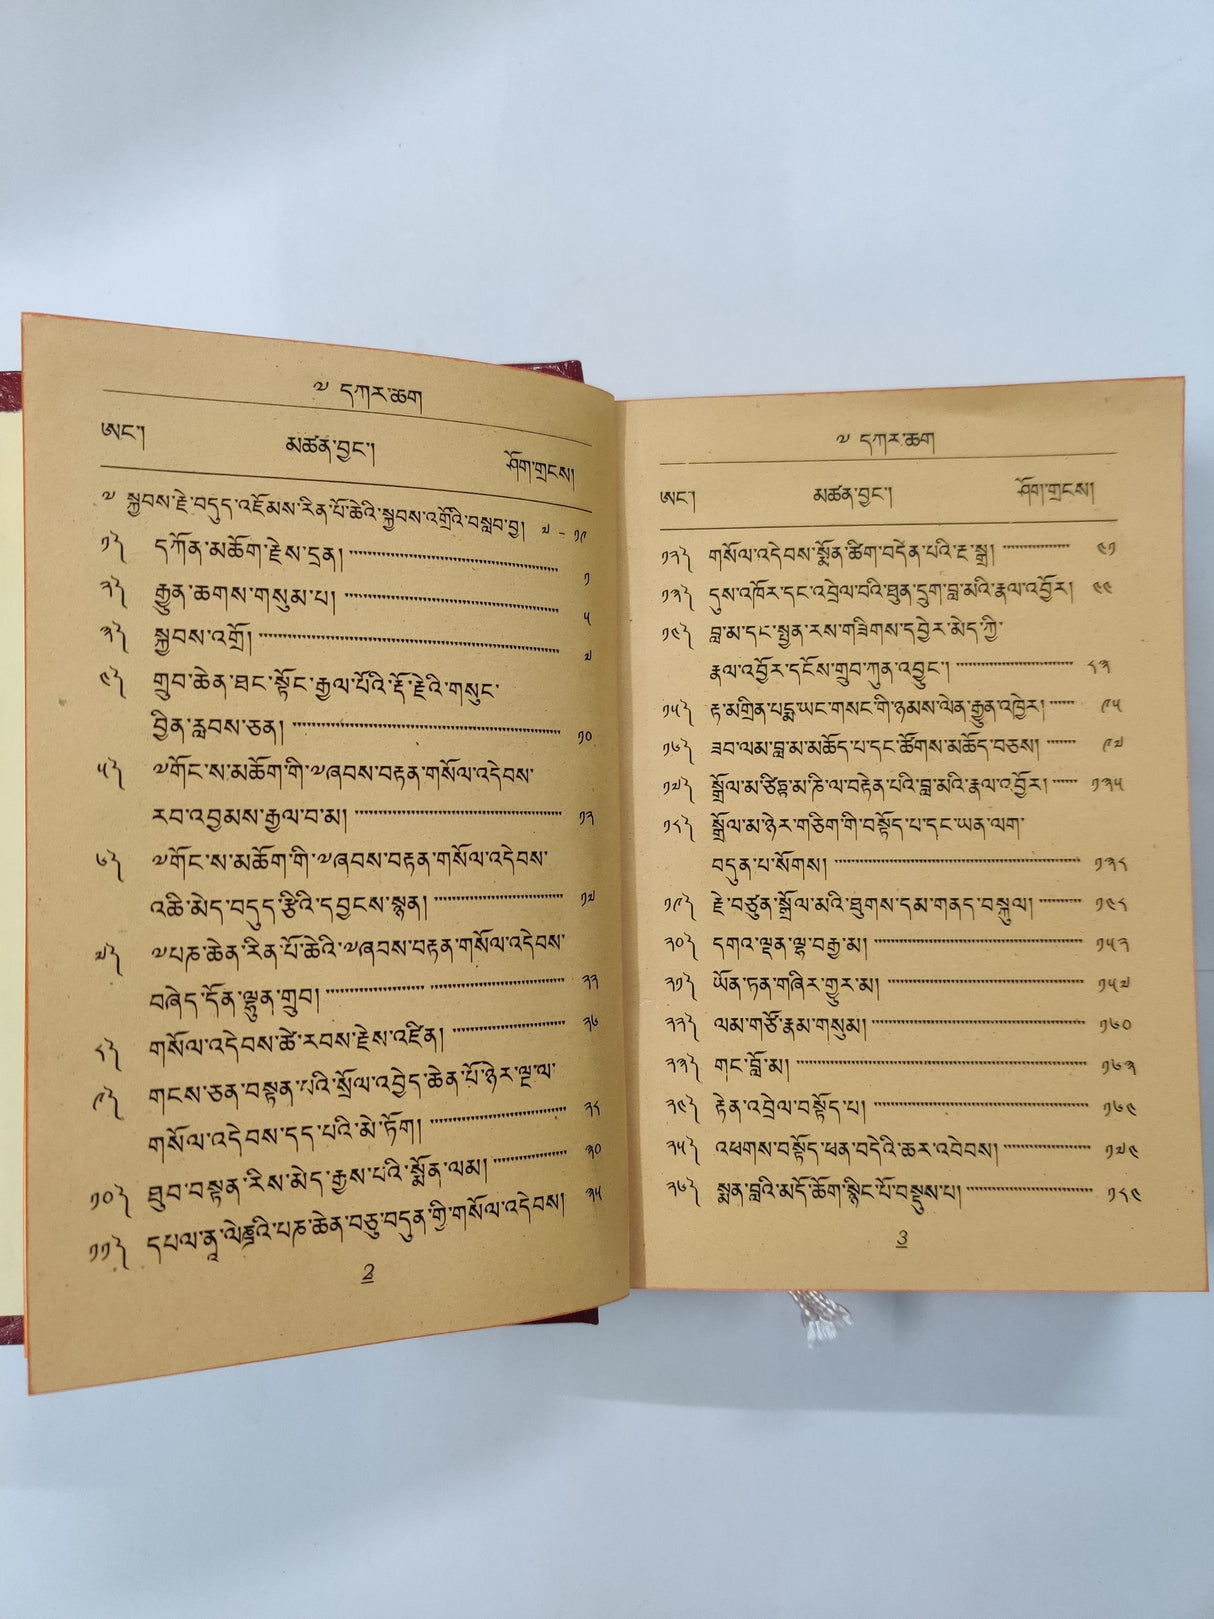 ༧ དཀར་ཆག
ཨང་།
མཚན་བྱང་།
ཤོག་གྲངས།
༧ སྐྱབས་རྗེ་བདུད་འཇོམས་རིན་པོ་ཆེའི་སྐྱབས་འགྲོའི་བསླབ་བྱ། ༧ - ༡༩
༡༽ དཀོན་མཆོག་རྗེས་དྲན། ༡
༢༽ རྒྱུན་ཆགས་གསུམ་པ། ༥
༣༽ སྐྱབས་འགྲོ། ༧
༤༽ གྲུབ་ཆེན་ཐང་སྟོང་རྒྱལ་པོའི་རྡོ་རྗེའི་གསུང་
བྱིན་རླབས་ཅན། ༡༠
༥༽ ༧གོང་ས་མཆོག་གི་༧ཞབས་བརྟན་གསོལ་འདེབས་
རབ་འབྱམས་རྒྱལ་བ་མ། ༡༢
༦༽ ༧གོང་ས་མཆོག་གི་༧ཞབས་བརྟན་གསོལ་འདེབས་
འཆི་མེད་བདུད་རྩིའི་དབྱངས་སྙན། ༡༧
༧༽ ༧པཎ་ཆེན་རིན་པོ་ཆེའི་༧ཞབས་བརྟན་གསོལ་འདེབས་
བཞེད་དོན་ལྷུན་གྲུབ། ༢༢
༨༽ གསོལ་འདེབས་ཚེ་རབས་རྗེས་འཛིན། ༢༦
༩༽ གངས་ཅན་བསྟན་པའི་སྲོལ་འབྱེད་ཆེན་པོ་ཉེར་ལྔ་ལ་
གསོལ་འདེབས་དད་པའི་མེ་ཏོག། ༢༨
༡༠༽ ཐུབ་བསྟན་རིས་མེད་རྒྱས་པའི་སྨོན་ལམ། ༣༠
༡༡༽ དཔལ་ནཱ་ལེནྡྲའི་པཎ་ཆེན་བཅུ་བདུན་གྱི་གསོལ་འདེབས། ༣༥
2
༧ དཀར་ཆག
ཨང་།
མཚན་བྱང་།
ཤོག་གྲངས།
༡༢༽ གསོལ་འདེབས་སྨོན་ཚིག་བདེན་པའི་རྔ་སྒྲ། ༤༡
༡༣༽ དུས་འཁོར་དང་འབྲེལ་བའི་ཐུན་དྲུག་བླ་མའི་རྣལ་འབྱོར། ༤༤
༡༤༽ བླ་མ་དང་སྤྱན་རས་གཟིགས་དབྱེར་མེད་ཀྱི་
རྣལ་འབྱོར་དངོས་གྲུབ་ཀུན་འབྱུང་། ༨༣
༡༥༽ རྟ་མགྲིན་པདྨ་ཡང་གསང་གི་ཉམས་ལེན་རྒྱུན་འཁྱེར། ༩༥
༡༦༽ ཟབ་ལམ་བླ་མ་མཆོད་པ་དང་ཚོགས་མཆོད་བཅས། ༩༧
༡༧༽ སྒྲོལ་མ་ཙིཏྟ་མ་ཎི་ལ་བརྟེན་པའི་བླ་མའི་རྣལ་འབྱོར། ༡༣༥
༡༨༽ སྒྲོལ་མ་ཉེར་གཅིག་གི་བསྟོད་པ་དང་ཡན་ལག་
བདུན་པ་སོགས། ༡༣༨
༡༩༽ རྗེ་བཙུན་སྒྲོལ་མའི་ཐུགས་དམ་གནད་བསྐུལ། ༡༤༨
༢༠༽ དགའ་ལྡན་ལྷ་བརྒྱ་མ། ༡༥༢
༢༡༽ ཡོན་ཏན་གཞིར་གྱུར་མ། ༡༥༧
༢༢༽ ལམ་གཙོ་རྣམ་གསུམ། ༡༦༠
༢༣༽ གང་བློ་མ། ༡༦༣
༢༤༽ རྟེན་འབྲེལ་བསྟོད་པ། ༡༦༤
༢༥༽ འཕགས་བསྟོད་ཕན་བདེའི་ཆར་འབེབས། ༡༧༤
༢༦༽ སྨན་བླའི་མདོ་ཆོག་སྙིང་པོ་བསྡུས་པ། ༡༨༤
3